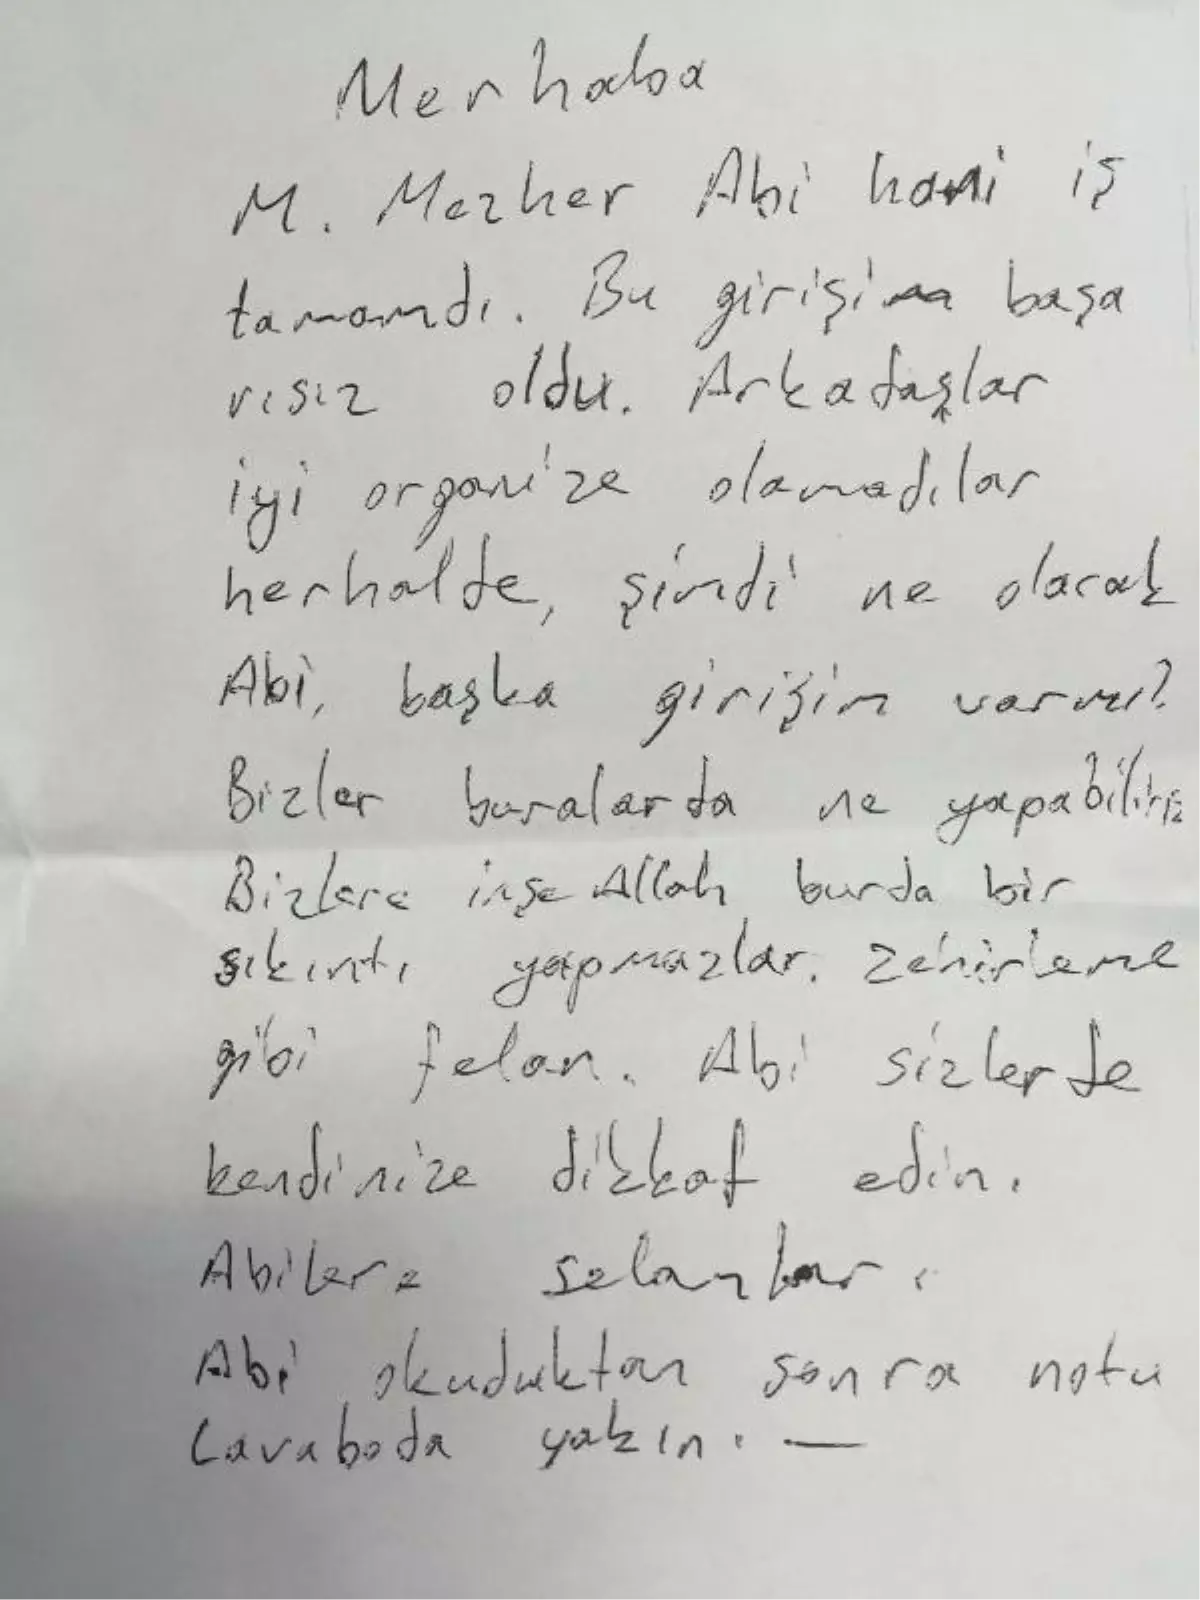 Merhaba
M. Mezher Abi hani iş
tamamdı. Bu girişim başa
rısız oldu. Arkadaşlar
iyi organize olamadılar
herhalde, şimdi ne olacak
Abi, başka girişim varmı?
Bizler buralarda ne yapabiliriz
Bizlere inşe Allah burda bir
sıkıntı yapmazlar. zehirleme
gibi felan. Abi sizlerde
kendinize dikkat edin.
Abilere selamlar.
Abi okuduktan sonra notu
Lavaboda yakın. —